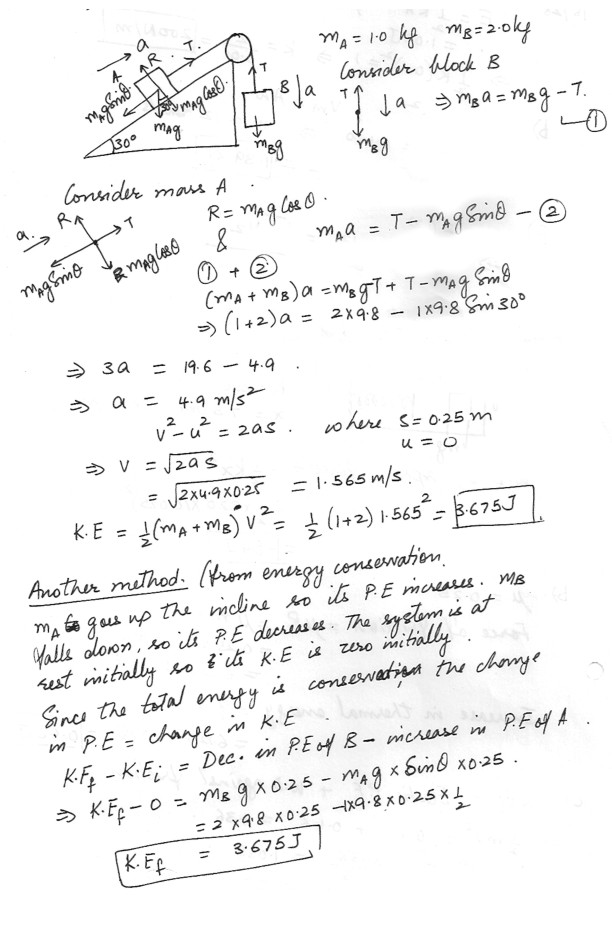 m_A = 1.0 kg   m_B = 2.0 kg
a
R
T.
A
m_A g Sinθ
m_A g Cosθ.
m_A g
30°
T
B
a
m_B g
Consider block B
T
a
⇒ m_B a = m_B g − T.
①
m_B g
Consider mass A
a.
R
T
m_A g Sinθ
m_A g Cosθ
R = m_A g Cosθ.
&
m_A a = T − m_A g Sinθ − ②
① + ②
(m_A + m_B) a = m_B g − T + T − m_A g Sinθ
⇒ (1+2) a = 2×9.8 − 1×9.8 Sin 30°
⇒ 3a = 19.6 − 4.9.
⇒ a = 4.9 m/s²
v² − u² = 2as.   where S = 0.25 m
u = 0
⇒ V = √2as
= √2×4.9×0.25 = 1.565 m/s.
K.E = ½ (m_A + m_B) V² = ½ (1+2) 1.565² = 3.675 J.
Another method. (from energy conservation.
m_A goes up the incline so its P.E increases. m_B
falls down, so its P.E decreases. The system is at
rest initially so its K.E is zero initially.
Since the total energy is conservation, the change
in P.E = change in K.E.
K.E_f − K.E_i = Dec. in P.E of B − increase in P.E of A.
⇒ K.E_f − 0 = m_B g × 0.25 − m_A g × Sinθ × 0.25.
= 2×9.8×0.25 − 1×9.8×0.25×½
K.E_f = 3.675 J